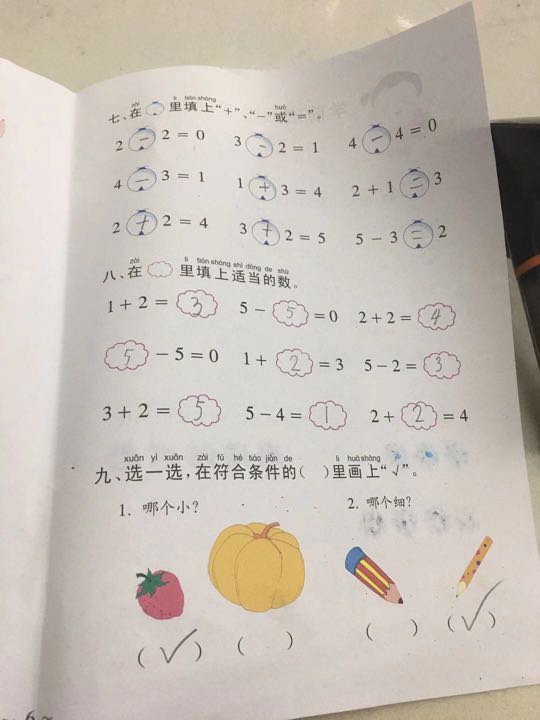 zài lǐ tián shàng huò
七、在 里填上“+”、“−”或“=”。
2 − 2 = 0 3 − 2 = 1 4 − 4 = 0
4 − 3 = 1 1 + 3 = 4 2 + 1 = 3
2 + 2 = 4 3 + 2 = 5 5 − 3 = 2
zài lǐ tián shàng shì dàng de shù
八、在 里填上适当的数。
1 + 2 = 3 5 − 5 = 0 2 + 2 = 4
5 − 5 = 0 1 + 2 = 3 5 − 2 = 3
3 + 2 = 5 5 − 4 = 1 2 + 2 = 4
xuǎn yì xuǎn zài fú hé tiáo jiàn de lǐ huà shàng
九、选一选,在符合条件的( )里画上“√”。
1. 哪个小? 2. 哪个细?
(√) ( ) ( ) (√)
6